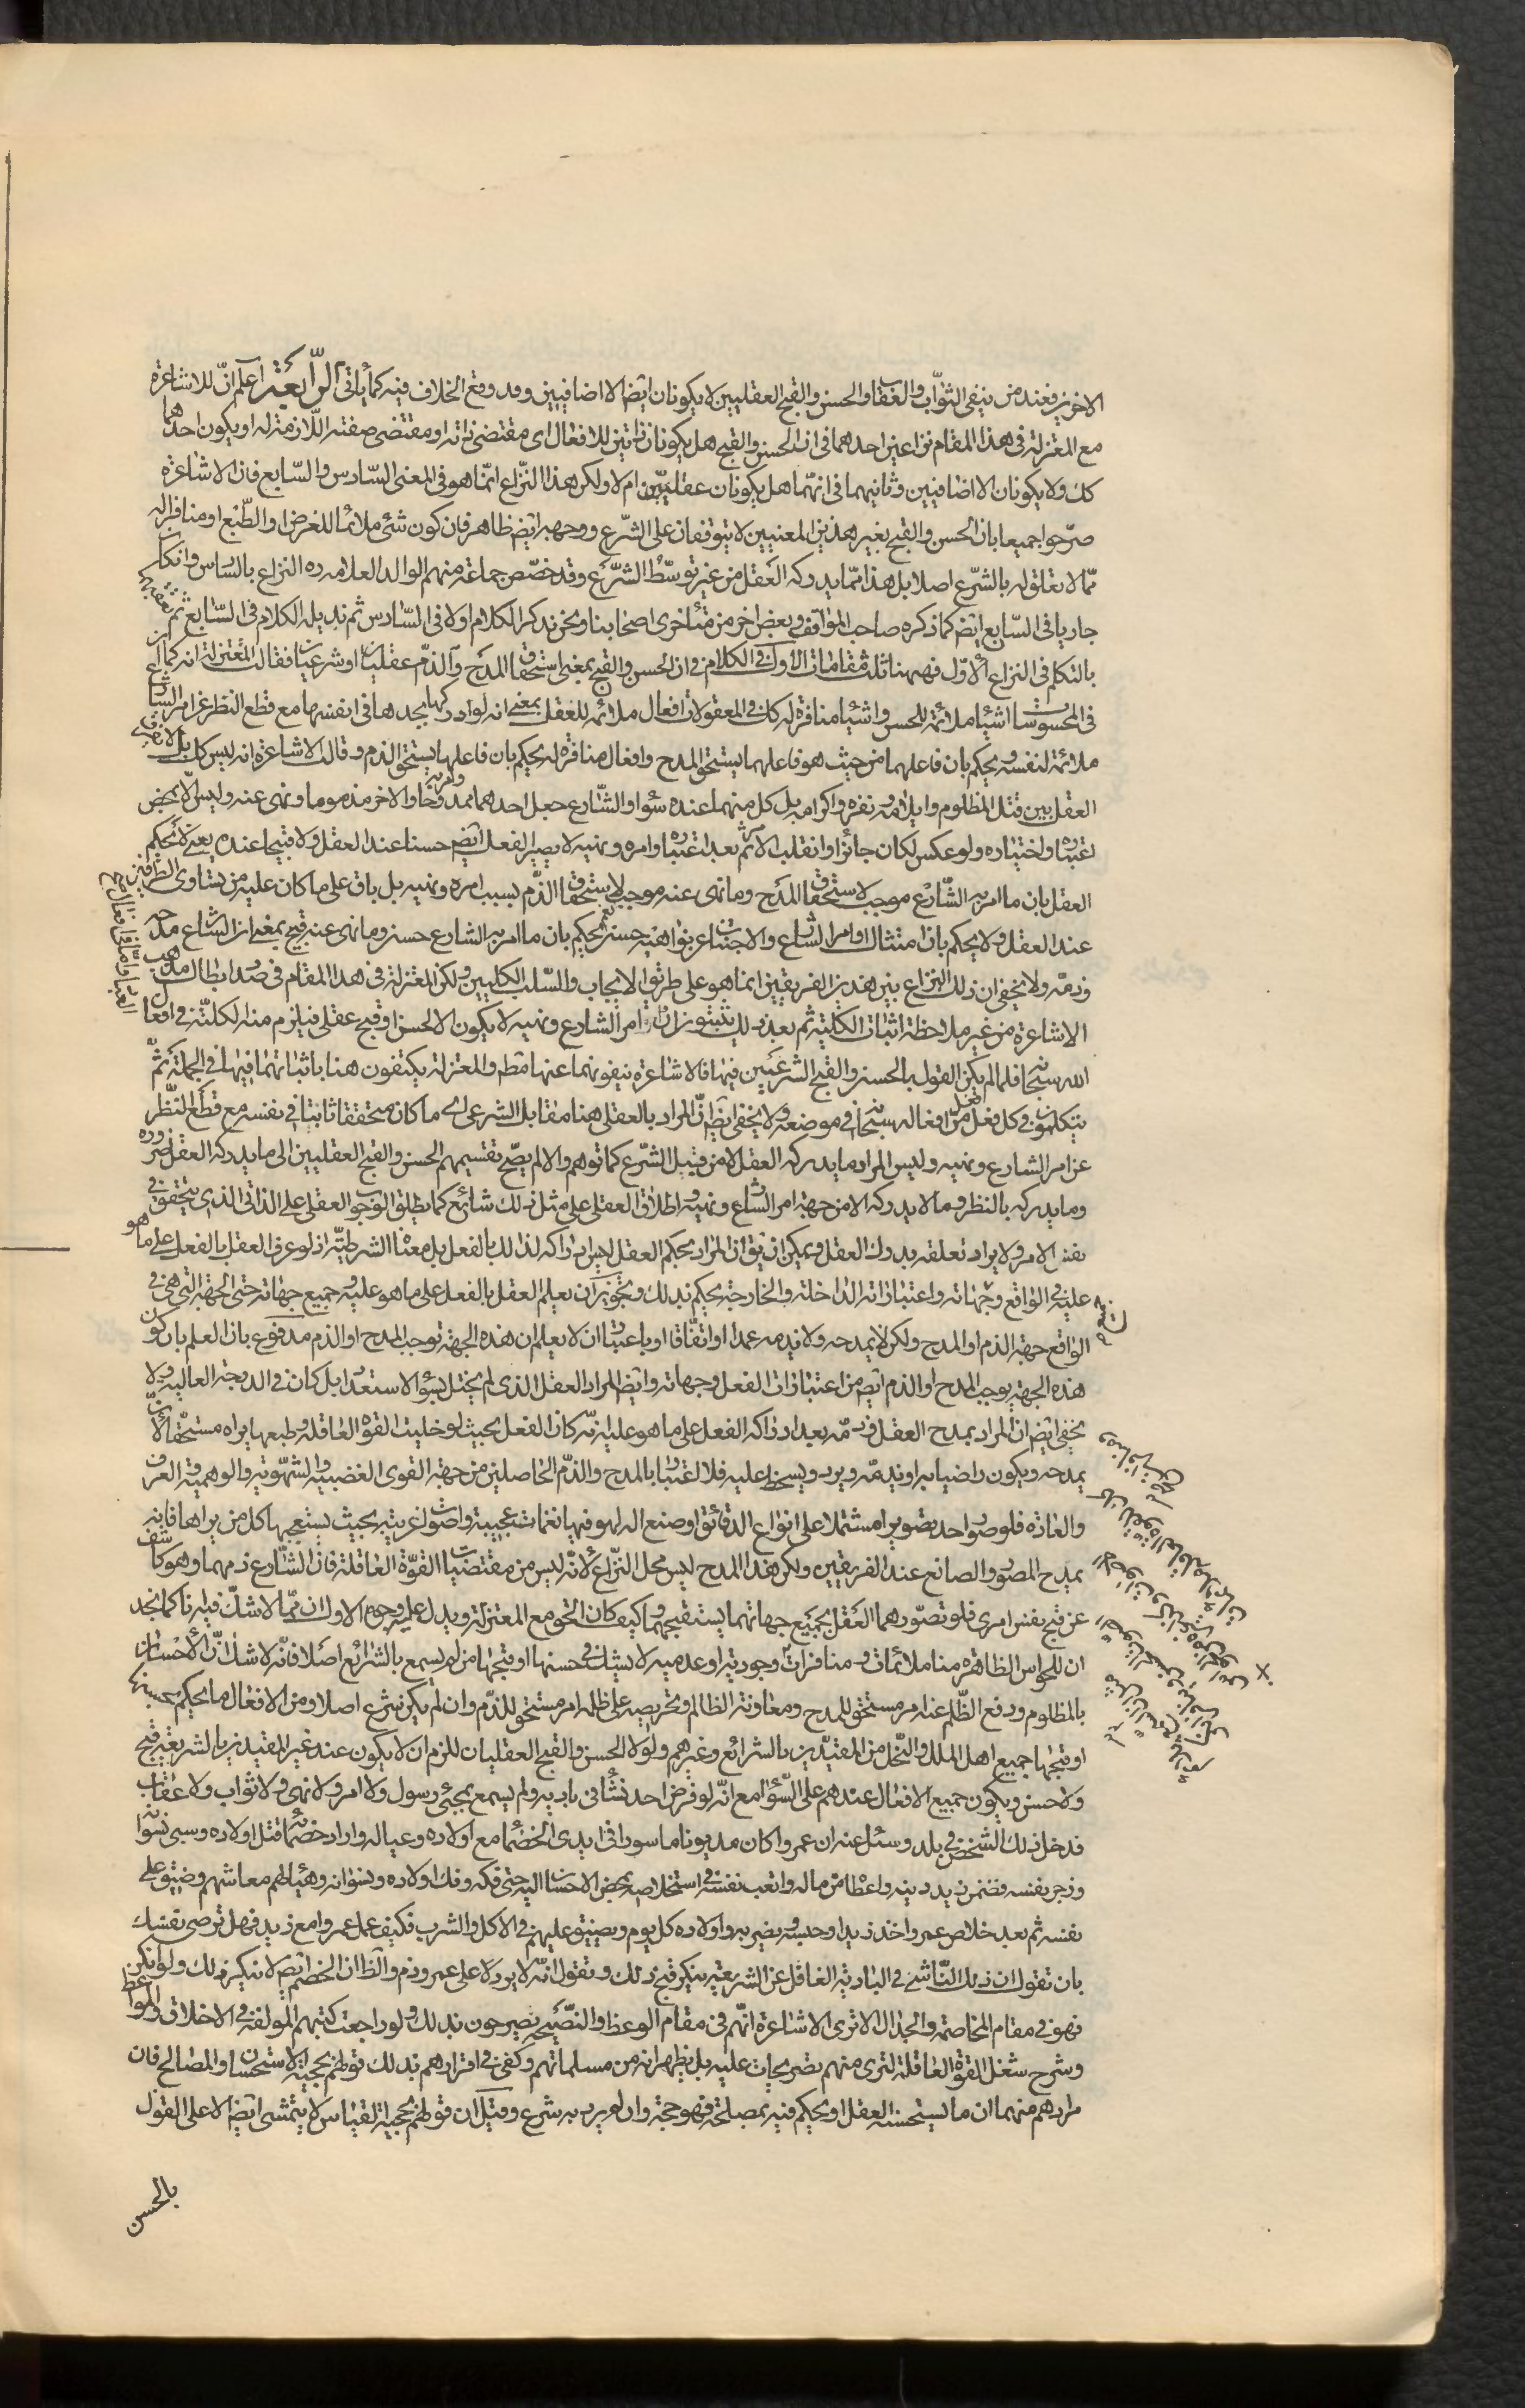 الاخريين فعند من ينفى الثواب والعقاب والحسن والقبح العقليين لا يكونان ايضا الا اضافيين وقد وقع الخلاف فيه كما ياتى الرابعة اعلم ان للاشاعرة
مع المعتزلة فى هذا المقام نزاعين احدهما فى ان الحسن والقبح هل يكونان ذاتيين للافعال اى مقتضى ذاته او مقتضى صفته اللازمة له او يكون احدهما
كك ولا يكونان الا اضافيين وثانيهما فى انهما هل يكونان عقليين ام لا ولكن هذا النزاع انما هو فى المعنى السادس والسابع فان الاشاعرة
صرحوا جميعا بان الحسن والقبح بغير هذين المعنيين لا يتوقفان على الشرع ووجهه ايضا ظاهر فان كون شئ ملائما للغرض او الطبع او منافرا له
مما لا تعلق له بالشرع اصلا بل هذا مما يدركه العقل من غير توسط الشرع وقد خصص جماعة منهم الوالد العلامه ره النزاع بالسادس وان كان
جاريا فى السابع ايضا كما ذكره صاحب المواقف وبعض اخر من متاخرى اصحابنا ونحن نذكر الكلام اولا فى السادس ثم نذيله الكلام فى السابع ثم نعقبه
بالتكلم فى النزاع الاول فههنا ثلث مقامات الاول فى الكلام فى ان الحسن والقبح بمعنى استحقاق المدح والذم عقليان او شرعيان فقالت المعتزلة انه كما ان
فى المحسوسات اشياء ملائمة للحس واشياء منافرة له كك فى المعقولات افعال ملائمه للعقل بمعنى انه لو ادركها يجدها فى انفسها مع قطع النظر عن امر الشارع
ملائمة لنفسه ويحكم بان فاعلها من حيث هو فاعلها يستحق المدح وافعال منافرة له يحكم بان فاعلها يستحق الذم وقالت الاشاعرة انه ليس كك بل لا فرق عند
العقل بين قتل المظلوم وايلامه ونفره واكرامه بل كل منهما عنده سواء والشارع جعل احدهما ممدوحا وامر به والاخر مذموما ونهى عنه وليس الا بمحض
اعتباره واختياره ولو عكس لكان جائزا وانقلب الامر ثم بعد اعتباره وامره ونهيه لا يصير الفعل ايضا حسنا عند العقل ولا قبيحا عنده يعنى لا يحكم
العقل بان ما امر به الشارع موجب لاستحقاق المدح وما نهى عنه موجب لاستحقاق الذم بسبب امره ونهيه بل باق على ما كان عليه من تساوى الطرفين
عند العقل ولا يحكم بان امتثال اوامر الشارع والاجتناب عن نواهيه حسن نعم يحكم بان ما امر به الشارع حسن وما نهى عنه قبيح بمعنى ان الشارع مدحه
وذمه ولا يخفى ان ذلك النزاع بين هذين الفريقين انما هو على طريق الايجاب والسلب الكليين ولكن المعتزلة فى هذا المقام فى صدد ابطال مذهب
الاشاعرة من غير ملاحظة اثبات الكلية ثم بعد ذلك يثبتون ان امر الشارع ونهيه لا يكون الا لحسن او قبح عقلى فيلزم منه الكلية فى افعال
الله سبحانه فلما لم يكن القول بالحسن والقبح الشرعيين فيها فالاشاعرة ينفونهما عنها مطلقا والمعتزلة يكتفون هنا باثباتهما فيها فى الجملة ثم
يتكلمون فى كل فعل فعل من افعاله سبحانه فى موضعه ولا يخفى ايضا ان المراد بالعقلى هنا مقابل الشرعى اى ما كان متحققا ثابتا فى نفسه مع قطع النظر
عن امر الشارع ونهيه وليس المراد ما يدركه العقل لا من قبل الشرع كما توهم والا لم يصح تقسيمهم الحسن والقبح العقليين الى ما يدركه العقل ضرورة
وما يدركه بالنظر وما لا يدركه الا من جهة امر الشارع ونهيه واطلاق العقلى على مثل ذلك شائع كما يطلق الوجوب العقلى على الذاتى الذى يتحقق فى
نفس الامر ولا يراد تعلقه بدرك العقل ويمكن ان يق ان المراد بحكم العقل ليس ادراكه لذلك بالفعل بل معناه الشرطية اذ لو عرف العقل بالفعل على ما هو
عليه فى الواقع وجهاته واعتباراته الداخلة والخارجة يحكم بذلك وتجويز ان يعلم العقل بالفعل على ما هو عليه وجميع جهاته حتى الجهة التى هى فى
الواقع جهة الذم او المدح ولكن لا يمدحه ولا يذمه عمدا او اتفاقا او باعتبار ان لا يعلم ان هذه الجهة توجب المدح او الذم مدفوع بان العلم بان كون
هذه الجهة يوجب المدح او الذم ايضا من اعتبارات الفعل وجهاته وايضا المراد العقل الذى لم يختل بسوء الاستعداد بل كان فى الدرجة العالية ولا
يخفى ايضا ان المراد بمدح العقل وذمه بعد ادراكه الفعل على ما هو عليه انه كان الفعل بحيث لو خليت القوه العاقلة وطبعها يراه مستحقا لان
يمدحه ويكون راضيا به او يذمه ويرده ويسخط عليه فلا اعتبار بالمدح والذم الحاصلين من جهة القوى الغضبية والشهوية والوهمية والعرف
والعادة فلو صور احد تصويرا مشتملا على انواع الدقائق او صنع اله لهو فيها نغمات عجيبة واصوات غريبة بحيث يستعجبها كل من يراها فانه
يمدح المصور والصانع عند الفريقين ولكن هذا المدح ليس محل النزاع لانه ليس من مقتضيات القوة العاقلة فان الشارع ذمهما وهو كاشف
عن قبح نفس امرى فلو تصورهما العقل بجميع جهاتهما يستقبحهما وكيف كان الحق مع المعتزلة ويدل عليه وجوه الاول ان مما لا شك فيه انا كما نجد
ان للحواس الظاهرة منا ملائمات ومنافرات وجودية او عدمية لا يشك فى حسنها او قبحها من لم يسمع بالشرائع اصلا فانه لا شك ان الاحسان
بالمظلوم ودفع الظلم عنه امر مستحق للمدح ومعاونة الظالم وتحريصه على ظلمه امر مستحق للذم وان لم يكن شرع اصلا ومن الافعال ما يحكم بحسنها
او قبحها جميع اهل الملل والنحل من المقيدين بالشرائع وغيرهم ولولا الحسن والقبح العقليان للزم ان لا يكون عند غير المقيدين بالشريعة قبح
ولا حسن ويكون جميع الافعال عندهم على السواء مع انه لو فرض احد نشأ فى بادية ولم يسمع بمجئ رسول ولا امر ولا نهى ولا ثواب ولا عقاب
فدخل ذلك الشخص فى بلد وسئل عنه ان عمروا كان مديونا ماسورا فى ايدى الخصماء مع اولاده وعياله واراد خصمائه قتل اولاده وسبى نسوانه
وزجر نفسه فضمن زيد دينه واعطاه من ماله واتعب نفسه فى استخلاصه بمحض الاحسان اليه حتى فكه وفك اولاده ونسوانه وهيأ لهم معاشهم وضيق على
نفسه ثم بعد خلاص عمرو اخذ زيدا وحبسه ويضربه واولاده كل يوم ويضيق عليهم فى الاكل والشرب فكيف عمل عمروا مع زيد فهل ترضى نفسك
بان تقول ان ذلك الناشى فى البادية الغافل عن الشريعة ينكر قبح ذلك وتقول انه لا يرد على عمرو ذم والظ ان الخصم ايضا لا ينكر ذلك ولو انكر
فهو فى مقام المخاصمة والجدال الا ترى الاشاعرة انهم فى مقام الوعظ والنصيحة يصرحون بذلك ولو راجعت كتبهم المؤلفة فى الاخلاق والمواعظ
وشرح شغل القوة العاقلة لترى منهم تصريحات عليه بل يظهر انه من مسلماتهم وكفى فى اقرارهم بذلك قولهم بحجية الاستحسان والمصالح فان
مرادهم منهما ان ما يستحسنه العقل او يحكم فيه بمصلحة فهو حجة وان لم يرد به شرع وقيل ان قولهم بحجية القياس لا يتمشى ايضا الا على القول
بالحسن